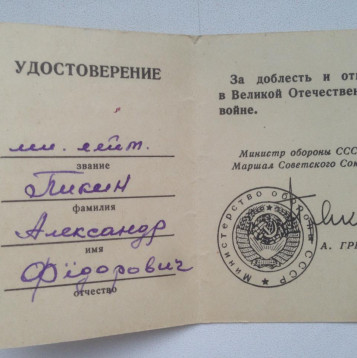 УДОСТОВЕРЕНИЕ
мл. лейт.
звание
Пикин
фамилия
Александр
имя
Фёдорович
отчество
За доблесть и от
в Великой Отечествен
войне.
Министр обороны ССС
Маршал Советского Сою
Министерство обороны СССР
А. ГР